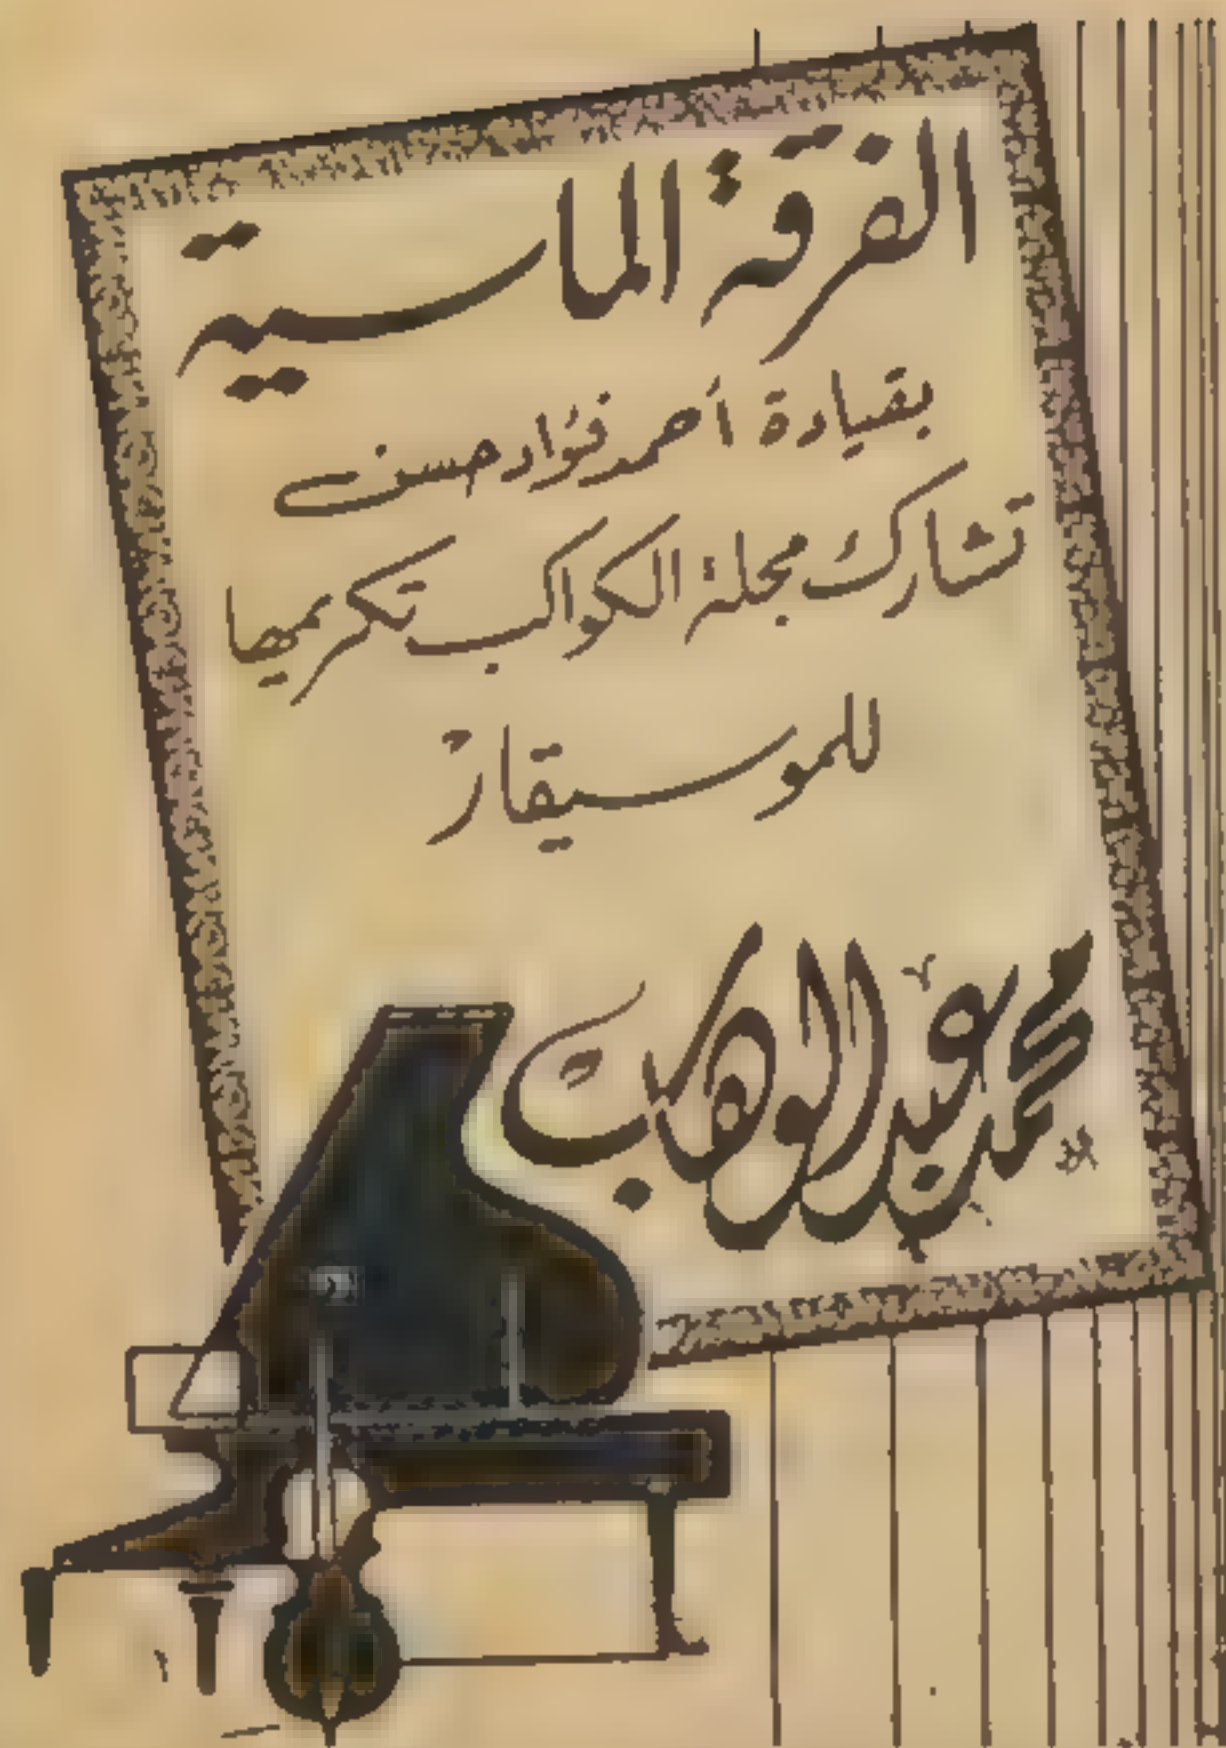 الفرقة الماسية
بقيادة أحمد فؤاد حسن
تشارك مجلة الكواكب تكريمها
للموسيقار
محمد عبد الوهاب